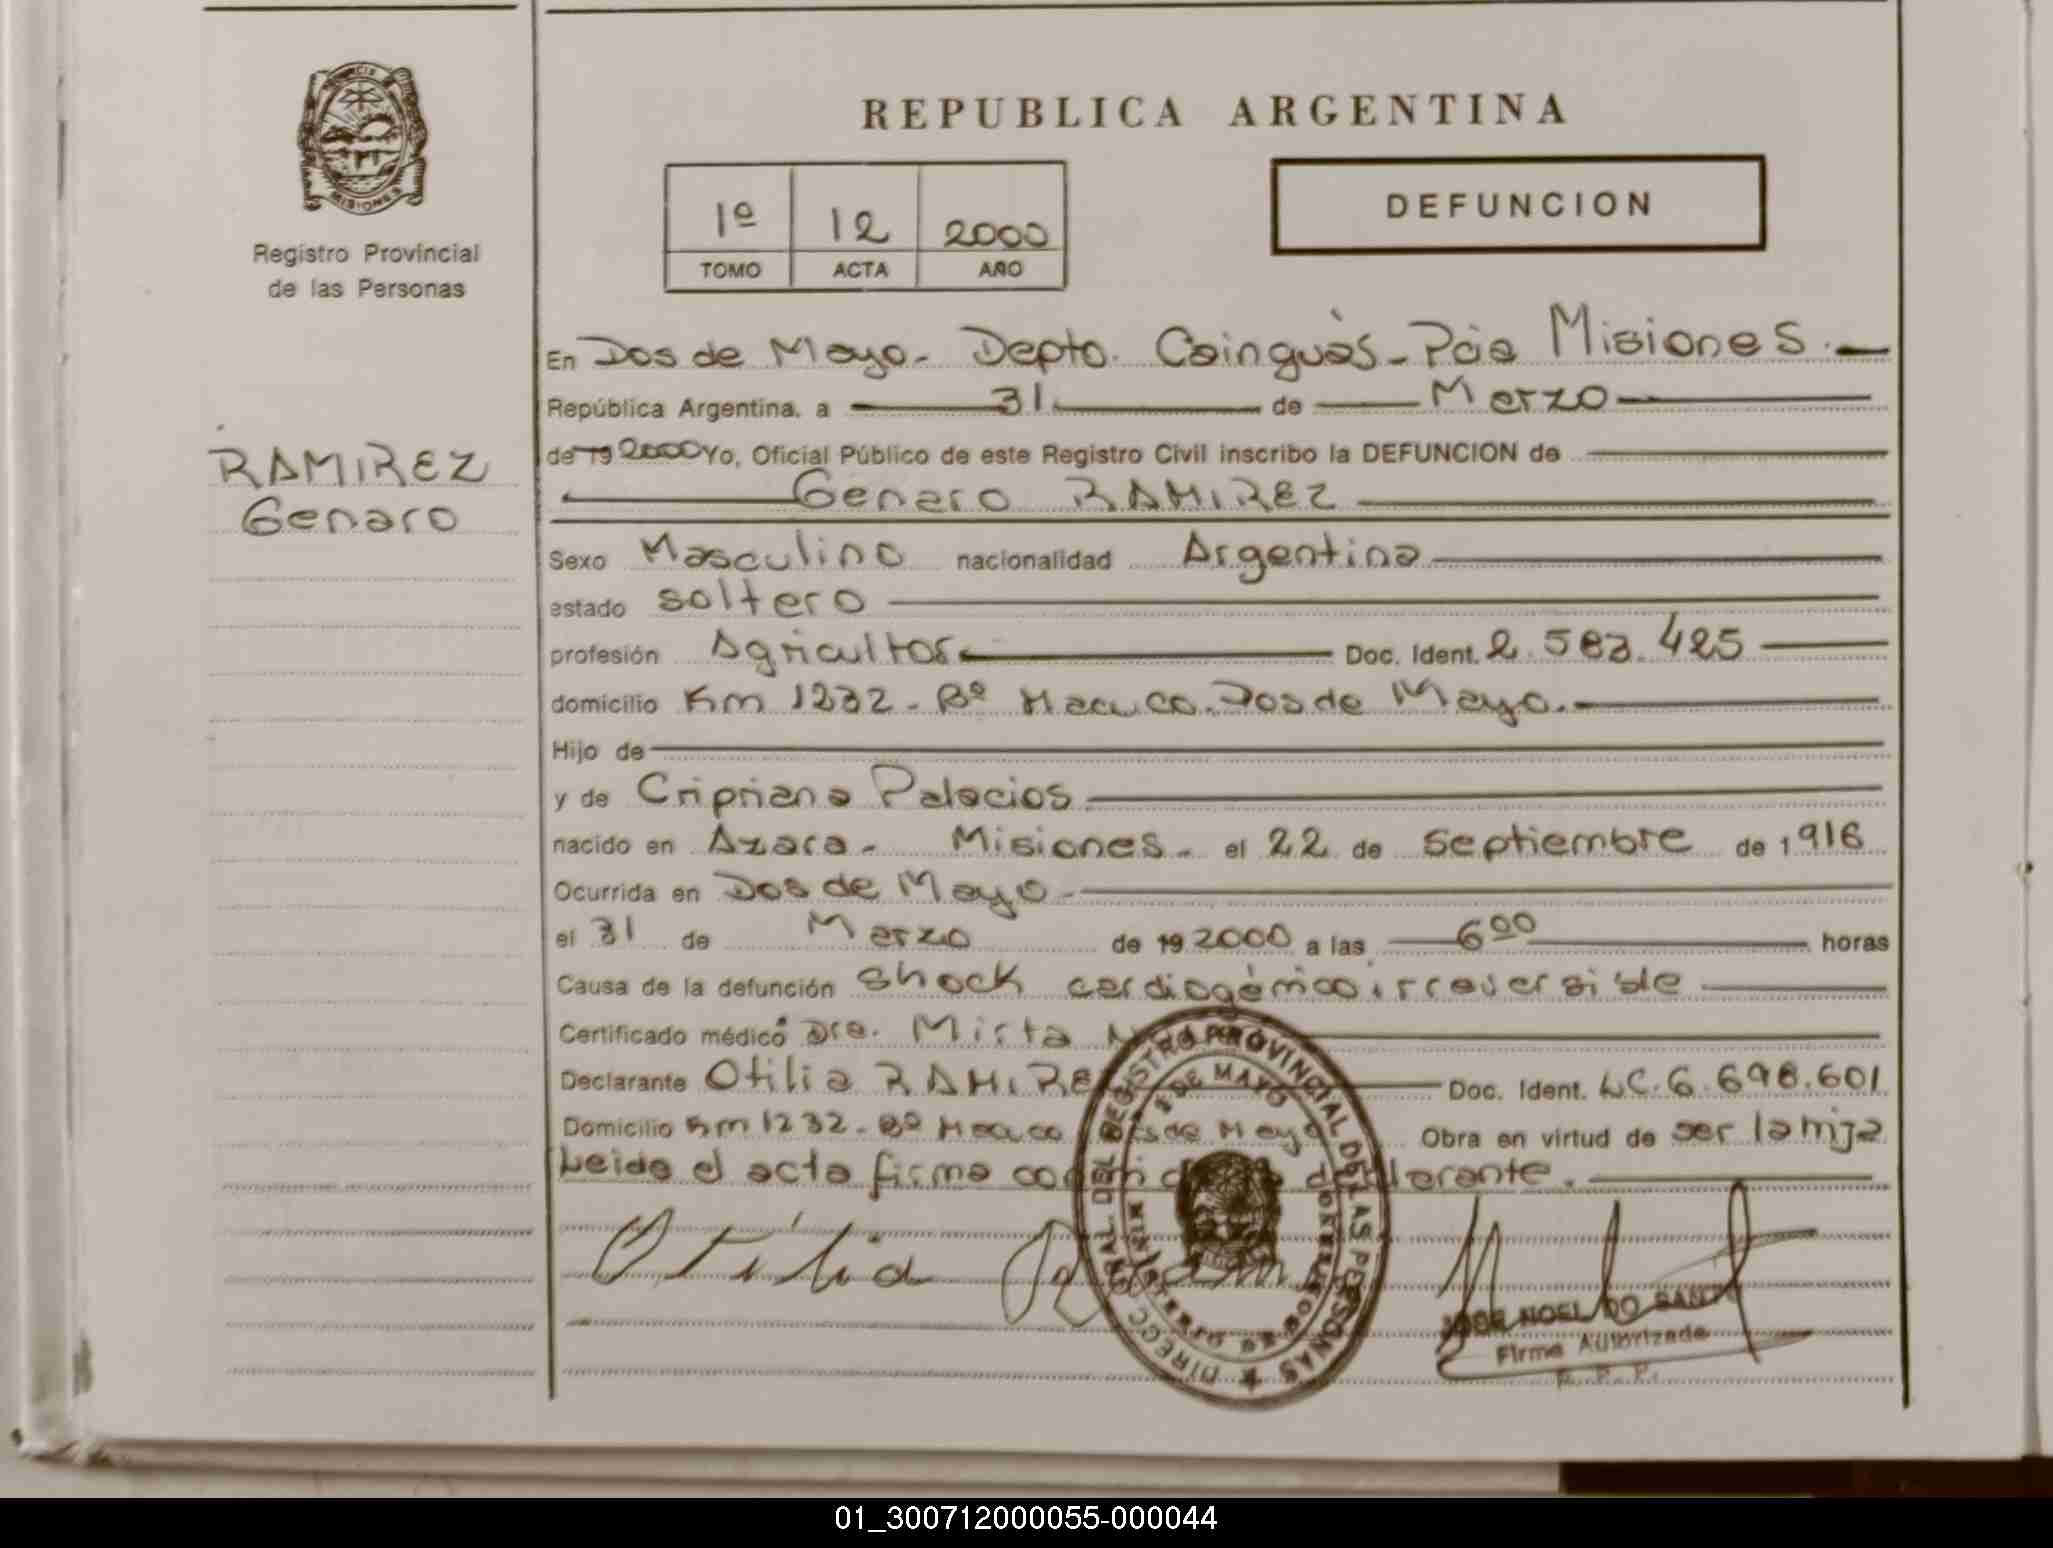 REPUBLICA ARGENTINA
DEFUNCION
1º 12 2000
TOMO ACTA AÑO
Registro Provincial
de las Personas
MISIONES
RAMIREZ
Genaro
En Dos de Mayo - Depto. Cainguàs - Pcia Misiones.
República Argentina, a 31 de Marzo
de 19 2000 Yo, Oficial Público de este Registro Civil inscribo la DEFUNCION de
Genaro RAMIREZ
Sexo Masculino nacionalidad Argentina
estado soltero
profesión Agricultor Doc. Ident. 2.583.425
domicilio Km 1232 - Bº Macuco. Dos de Mayo.
Hijo de
y de Cripriana Palacios
nacido en Azara - Misiones - el 22 de septiembre de 1916
Ocurrida en Dos de Mayo -
el 31 de Marzo de 19 2000 a las 6 00 horas
Causa de la defunción shock cardiogénico irreversible
Certificado médico Dra. Mirta
Declarante Otilia RAMIREZ Doc. Ident. LC. 6.698.601
Domicilio Km 1232 - Bº Macuco Dos de Mayo Obra en virtud de ser la hija
Leida el acta firma conmigo la declarante.
Otilia
DIRECC GRAL. DEL REGISTRO PROVINCIAL DE LAS PERSONAS
2 DE MAYO
NOEL DO
Firma Autorizada
R. P. P.
01_300712000055-000044